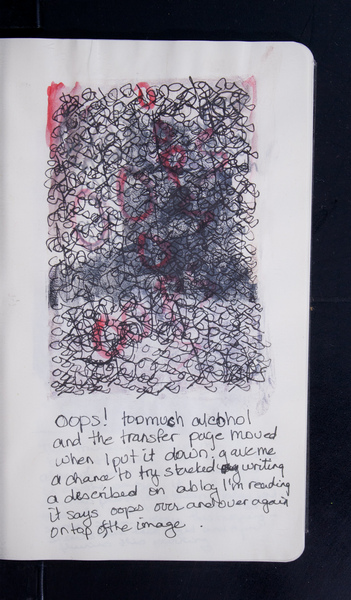 oops! too much alcohol
and the transfer page moved
when I put it down; gave me
a chance to try stacked writing
a described on a blog I'm reading
it says oops over and over again
on top of the image.